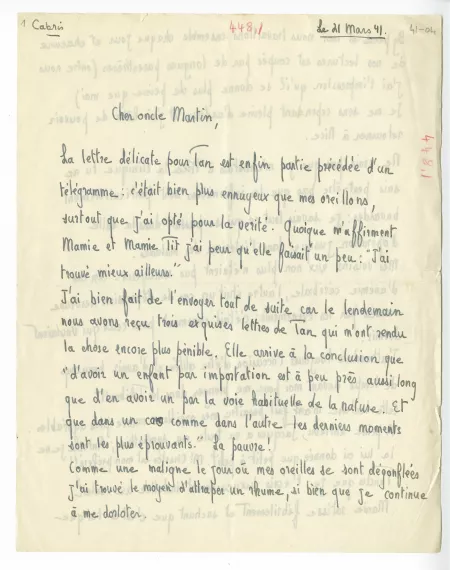 1 Cabris
448,1
Le 21 Mars 41.
41-04
448,1
Cher oncle Martin,
La lettre délicate pour Tan est enfin partie précédée d'un
télégramme : c'était bien plus ennuyeux que mes oreillons,
surtout que j'ai opté pour la verité. Quoique m'affirment
Mamie et Mamie Tit j'ai peur qu'elle faisait un peu : "J'ai
trouvé mieux ailleurs."
J'ai bien fait de l'envoyer tout de suite car le lendemain
nous avons reçu trois exquises lettres de Tan qui m'ont rendu
la chose encore plus pénible. Elle arrive à la conclusion que
"d'avoir un enfant par importation est à peu près aussi long
que d'en avoir un par la voie habituelle de la nature. Et
que dans un cas comme dans l'autre les derniers moments
sont les plus éprouvants." La pauvre!
Comme une maligne le jour où mes oreilles se sont dégonflées
j'ai trouvé le moyen d'attraper un rhume, si bien que je continue
à me dorloter.